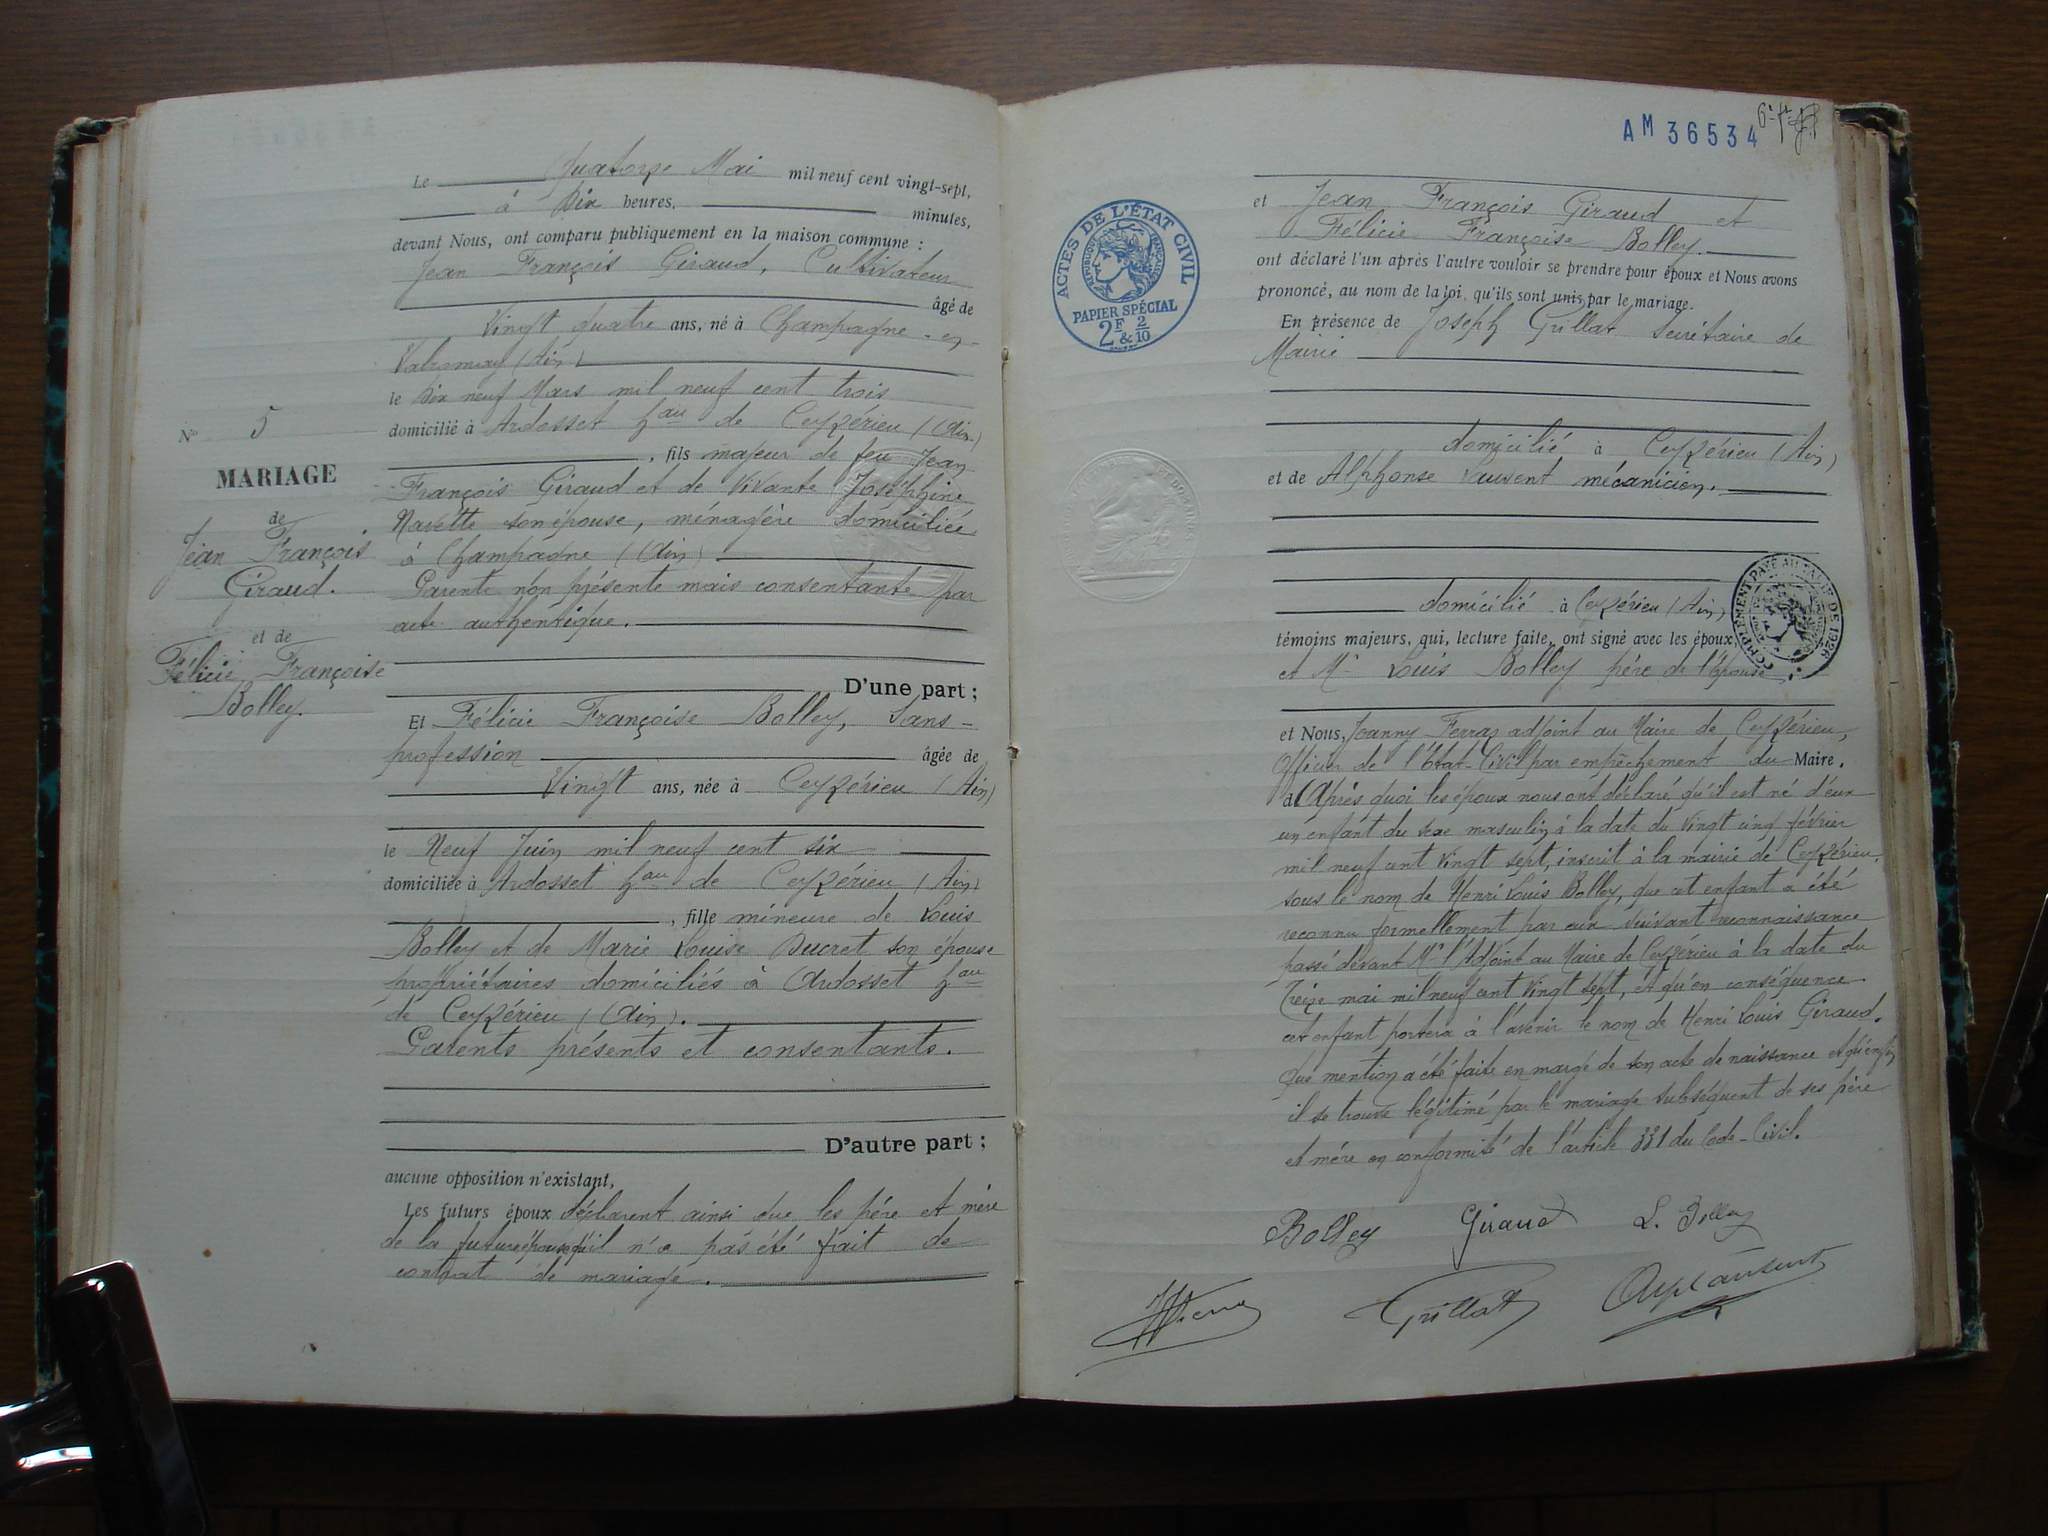 Le Quatorze Mai mil neuf cent vingt-sept,
à Dix heures, minutes,
devant Nous, ont comparu publiquement en la maison commune :
Jean François Giraud, Cultivateur
âgé de
Vingt quatre ans, né à Champagne-en-
Valromey (Ain)
le Dix neuf Mars mil neuf cent trois
domicilié à Ardosset hau de Ceyzérieu (Ain)
, fils majeur de feu Jean
François Giraud et de vivante Joséphine
Navette son épouse, ménagère domiciliée
à Champagne (Ain)
Parente non présente mais consentante par
acte authentique.
D'une part ;
Et Félicie Françoise Bolley, Sans-
profession âgée de
Vingt ans, née à Ceyzérieu (Ain)
le Neuf Juin mil neuf cent six
domiciliée à Ardosset hau de Ceyzérieu (Ain)
, fille mineure de Louis
Bolley et de Marie Louise Ducret son épouse
propriétaires domiciliés à Ardosset hau
de Ceyzérieu (Ain).
Parents présents et consentants.
D'autre part ;
aucune opposition n'existant,
Les futurs époux déclarent ainsi que les père et mère
de la future épouse qu'il n'a pas été fait de
contrat de mariage.
No 5
MARIAGE
de
Jean François
Giraud.
et de
Félicie Françoise
Bolley.
AM 36534
ACTES DE L'ÉTAT CIVIL
RÉPUBLIQUE FRANÇAISE
PAPIER SPÉCIAL
2F & 2/10
et Jean François Giraud et
Félicie Françoise Bolley.
ont déclaré l'un après l'autre vouloir se prendre pour époux et Nous avons
prononcé, au nom de la loi, qu'ils sont unis par le mariage.
En présence de Joseph Grillat secrétaire de
Mairie
domicilié à Ceyzérieu (Ain)
et de Alphonse Lauvent mécanicien.
domicilié à Ceyzérieu (Ain)
COMPLÉMENT PAYÉ AU TARIF DE 1926
témoins majeurs, qui, lecture faite, ont signé avec les époux
et Mr Louis Bolley père de l'épouse.
et Nous, Joanny Ferraz adjoint au Maire de Ceyzérieu,
Officier de l'Etat-Civil par empêchement du Maire.
a (Après quoi les époux nous ont déclaré qu'il est né d'eux
un enfant du sexe masculin, à la date du vingt cinq février
mil neuf cent vingt sept, inscrit à la mairie de Ceyzérieu,
sous le nom de Henri Louis Bolley, que cet enfant a été
reconnu formellement par eux suivant reconnaissance
passé devant Mr l'Adjoint au Maire de Ceyzérieu à la date du
Treize mai mil neuf cent vingt sept, et qu'en conséquence
cet enfant portera à l'avenir le nom de Henri Louis Giraud.
que mention a été faite en marge de son acte de naissance et qu'enfin
il se trouve légitimé par le mariage subséquent de ses père
et mère en conformité de l'article 331 du Code-Civil.
Bolley Giraud L. Bolley
Grillat